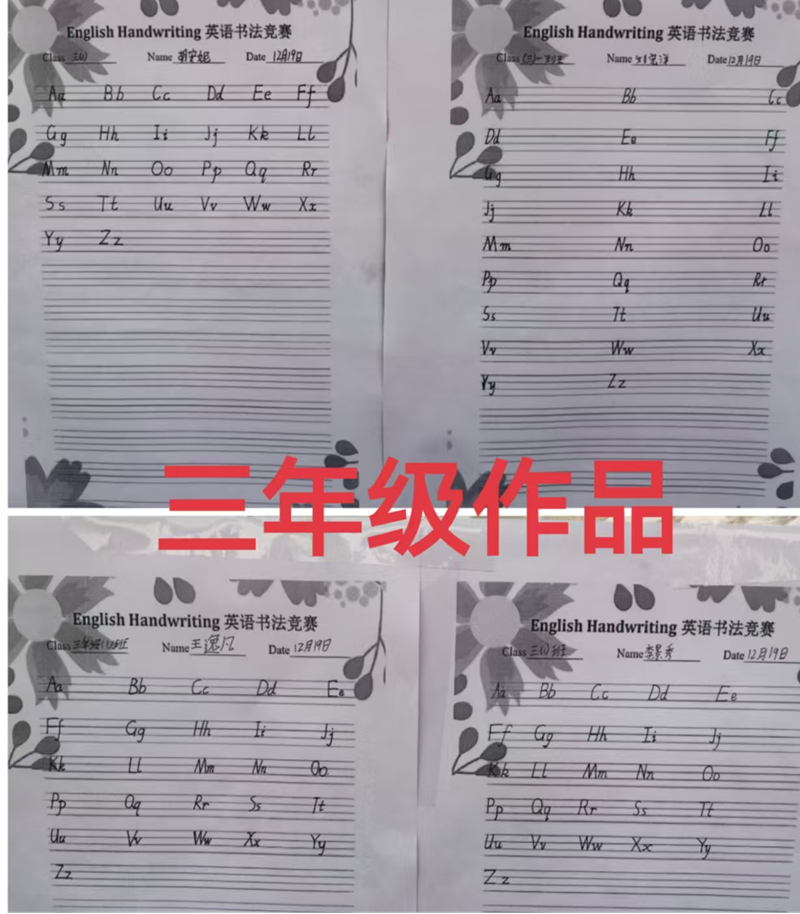 English Handwriting 英语书法竞赛
Class 三(1) Name Date 12月19日
Aa Bb Cc Dd Ee Ff
Gg Hh Ii Jj Kk Ll
Mm Nn Oo Pp Qq Rr
Ss Tt Uu Vv Ww Xx
Yy Zz
English Handwriting 英语书法竞赛
Class Name Date 12月19日
Aa Bb Cc
Dd Ee Ff
Gg Hh Ii
Jj Kk Ll
Mm Nn Oo
Pp Qq Rr
Ss Tt Uu
Vv Ww Xx
Yy Zz
三年级作品
English Handwriting 英语书法竞赛
Class Name 王逸凡 Date 12月19日
Aa Bb Cc Dd Ee
Ff Gg Hh Ii Jj
Kk Ll Mm Nn Oo
Pp Qq Rr Ss Tt
Uu Vv Ww Xx Yy
Zz
English Handwriting 英语书法竞赛
Class 三(1)班 Name 李景秀 Date 12月19日
Aa Bb Cc Dd Ee
Ff Gg Hh Ii Jj
Kk Ll Mm Nn Oo
Pp Qq Rr Ss Tt
Uu Vv Ww Xx Yy
Zz